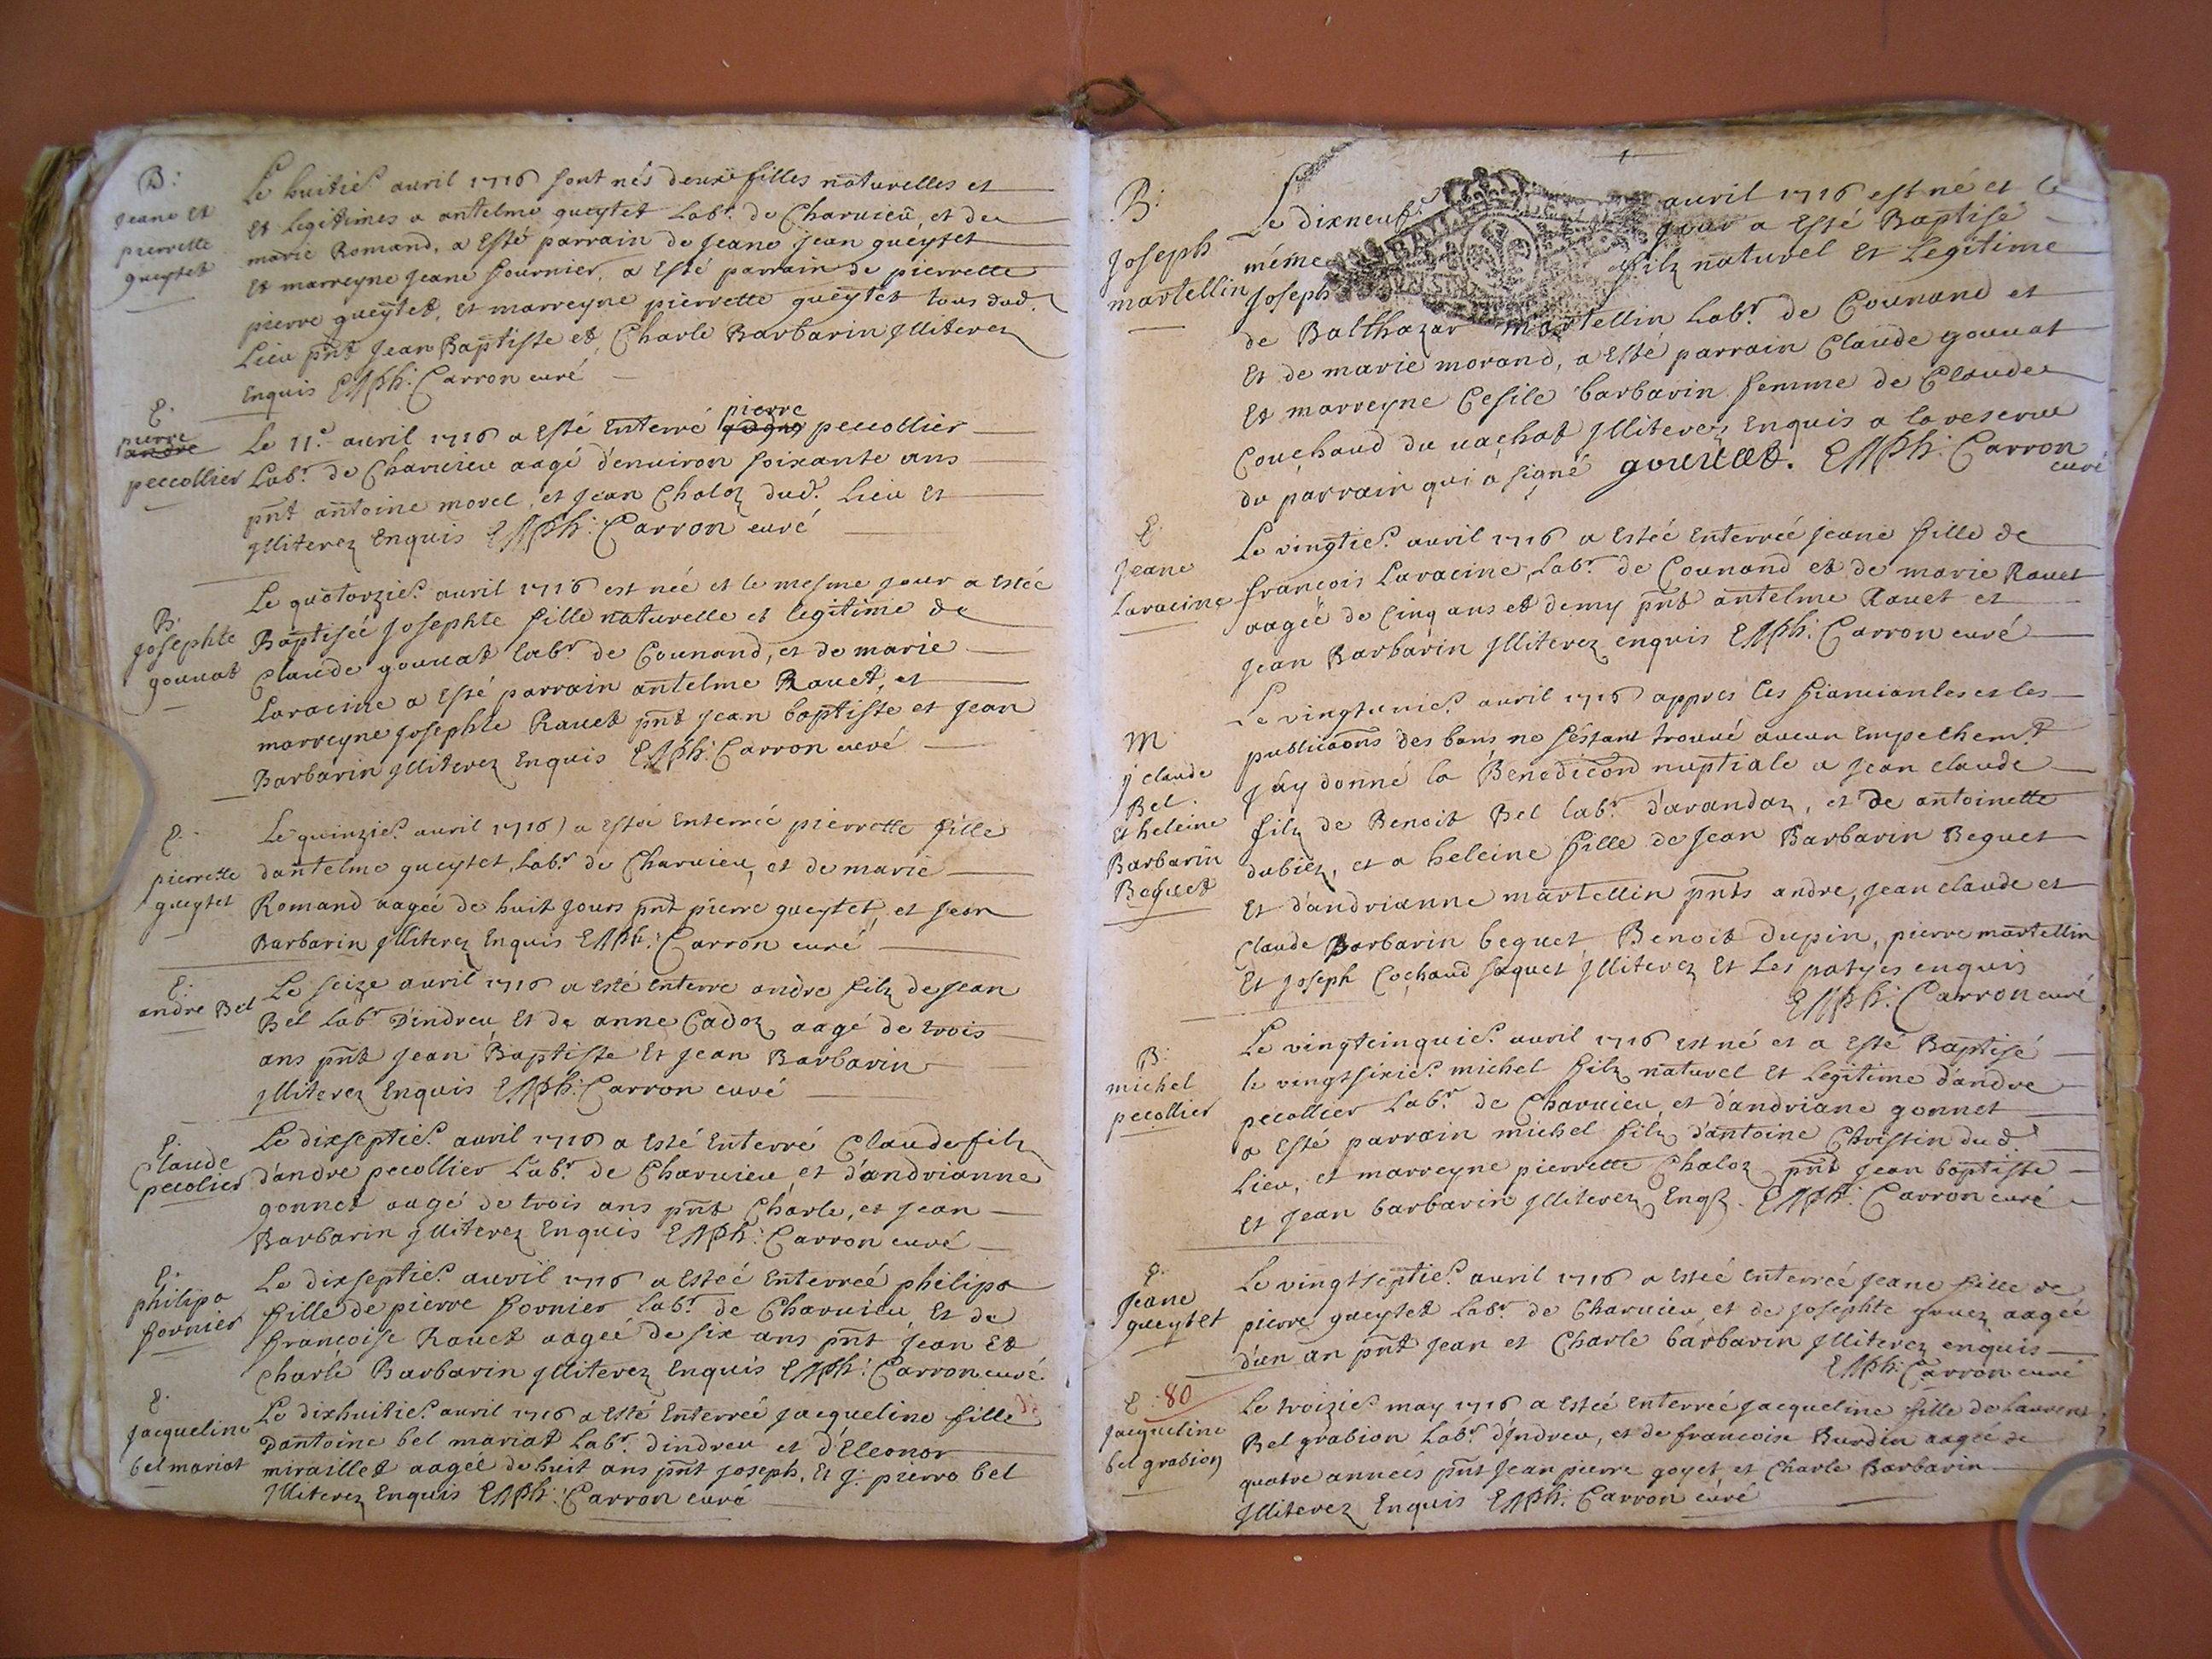 B:
Jeane et
pierrette
gueytet
Le huitie.^ auril 1716 sont nés deux filles naturelles et
et Legitimes a antelme gueytet Lab.^r de Charuieu, et de
marie Romand, a esté parrain de Jeane Jean gueytet
et marreyne Jeane fournier, a esté parrain de pierrette
pierre gueytet, et marreyne pierrette gueytet tous dud.
Lieu pnt Jean Baptiste et Charle Barbarin Jlliterez
enquis Carron curé
E.
pierre
andre
peccollier
Le 11.^e auril 1716 a esté enterré pierre peccollier
Lab.^r de Charuieu aagé d'enuiron soixante ans
pnt antoine morel, et Jean Chaloz dud. Lieu et
Jlliterez enquis Carron curé
B.
Josephte
gouuat
Le quatorzie. auril 1716 est née et le mesme jour a estée
Baptiseé Josephte fille naturelle et legitime de
Claude gouuat lab.^r de Counand, et de marie
Laracine a esté parrain antelme Rauet, et
marreyne Josephte Rauet pnt Jean baptiste et Jean
Barbarin Jlliterez enquis Carron curé
E.
pierrette
gueytet
Le quinzie. auril 1716 a estée enterrée pierrette fille
dantelme gueytet, Lab.^r de Charuieu, et de marie
Romand aageé de huit jours pnt pierre gueytet, et Jean
Barbarin Jlliterez enquis Carron curé
E.
andre Bel
Le seize auril 1716 a esté enterre andre filz de Jean
Bel Lab.^r D'indreu et de anne Cadoz aagé de trois
ans pnt Jean Baptiste et Jean Barbarin
Jlliterez enquis Carron curé
E.
Claude
pecolier
Le dixseptie. auril 1716 a esté enterré Claude filz
d'andre pecollier Lab.^r de Charuieu, et d'andrianne
gonnet aagé de trois ans pnt Charle, et Jean
Barbarin Jlliterez enquis Carron curé
E.
philipa
fornier
Le dixseptie. auril 1716 a esteé enterreé philipa
fille de pierre fornier lab.^r de Charuieu et de
francoise Rauet aageé de six ans pnt Jean et
charle Barbarin Jlliterez enquis Carron curé
E.
Jacqueline
bel mariat
Le dixhuitie. auril 1716 a esté enterreé Jacqueline fille
Dantoine bel mariat Lab.^r dindreu et d'Eleonor
miraillet aageé de huit ans pnt Joseph, et J: pierre bel
Jlliterez enquis Carron curé
B:
Joseph
martellin
Le dixneuf. auril 1716 est né et le
méme jour a esté Baptisé
Joseph filz naturel et Legitime
de Balthazar martellin Lab.^r de Counand et
et de marie morand, a esté parrain Claude gouuat
et marreyne Cesile barbarin femme de Claude
Couchaud du uachat Jlliterez enquis a la reserue
du parrain qui a signé gouuat. Carron
curé
E.
Jeane
Laracine
Le vingtie. auril 1716 a esteé enterreé Jeane fille de
francois Laracine, Lab.^r de Counand et de marie Rauet
aageé de cinq ans et demy pnt antelme Rauet et
Jean Barbarin Jlliterez enquis Carron curé
M.
J claude
Bel.
et heleine
Barbarin
Beguet
Le vingtunie. auril 1716 appres les fiancianles et les
publicaons des bans ne sestant trouué aucun empechem.t
J'ay donné la Benedicon nuptiale a Jean claude
filz de Benoit Bel lab.^r d'arandaz, et de antoinette
dubiez, et a heleine fille de Jean Barbarin Beguet
et d'andrianne martellin pnts andre, Jean claude et
Claude Barbarin beguet, Benoit dupin, pierre martellin
et Joseph Cochaud saquet Jlliterez et Les partyes enquis
Carron curé
B.
michel
pecollier
Le vingtcinquie. auril 1716 est né et a esté Baptisé
le vingtsixie. michel filz naturel et Legitime d'andre
pecollier Lab.^r de Charuieu, et d'andriane gonnet
a esté parrain michel filz d'antoine Christin du d.
Lieu, et marreyne pierrette Chaloz pnt Jean baptiste
et Jean barbarin Jlliterez Carron curé
E.
Jeane
gueytet
Le vingtseptie. auril 1716 a esteé enterreé Jeane fille de
pierre gueytet Lab.^r de Charuieu et de Josephte gruez aageé
d'un an pnt Jean et Charle barbarin Jlliterez enquis
Carron curé
E. 80
Jacqueline
bel grabion
Le troizie. may 1716 a esteé enterreé Jacqueline fille de Laurent
Bel grabion Lab.^r d'Indreu, et de francoise Burdin aageé de
quatre anneés pnt Jean pierre goyet et Charle Barbarin
Jlliterez enquis Carron curé